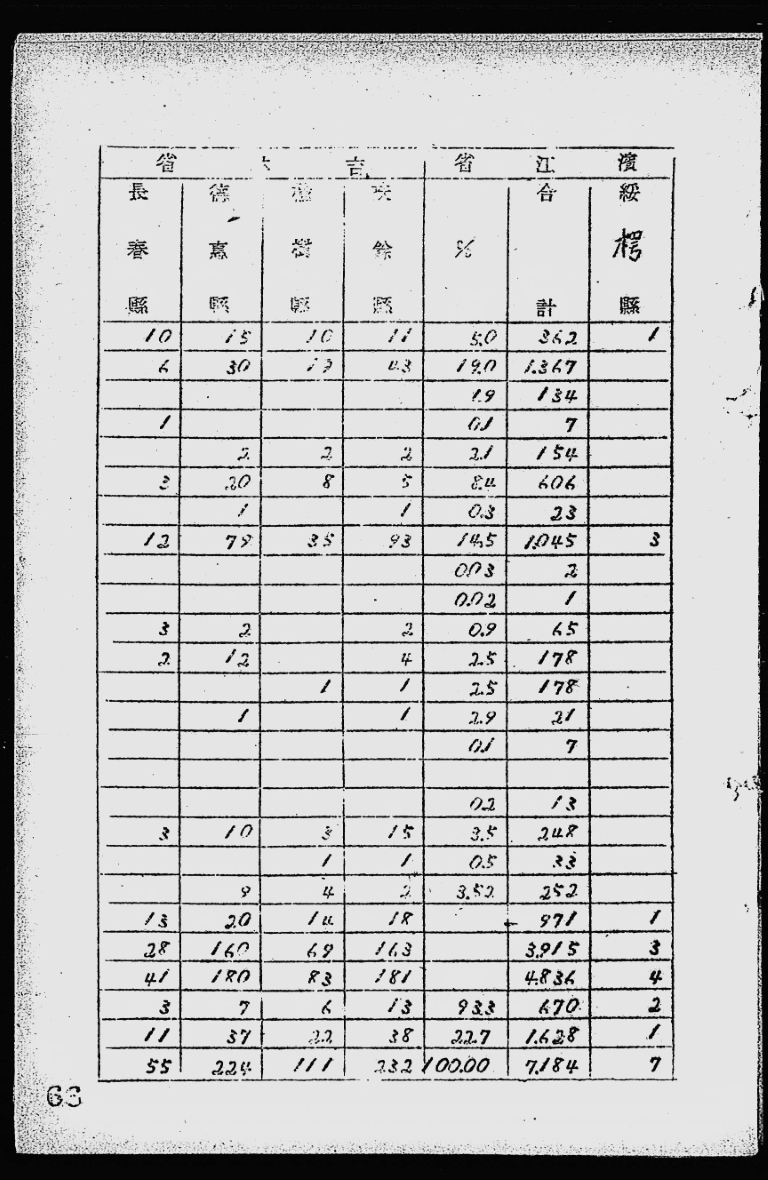 濱 江 省 吉 省
綏楞縣 合計 % 扶餘縣 樹縣 德惠縣 長春縣
1 362 5.0 11 10 15 10
1.367 19.0 43 19 30 6
134 1.9
7 0.1 1
154 2.1 2 2 2
606 8.4 5 8 20 3
23 0.3 1 1
3 1.045 14.5 93 35 79 12
2 0.03
1 0.02
65 0.9 2 2 3
178 2.5 4 12 2
178 2.5 1 1
21 2.9 1 1
7 0.1
13 0.2
248 3.5 15 3 10 3
33 0.5 1 1
252 3.52 2 4 9
1 971 18 14 20 13
3 3.915 163 69 160 28
4 4.836 181 83 180 41
2 670 93.3 13 6 7 3
1 1.628 22.7 38 22 37 11
7 7.184 100.00 232 111 224 55
63